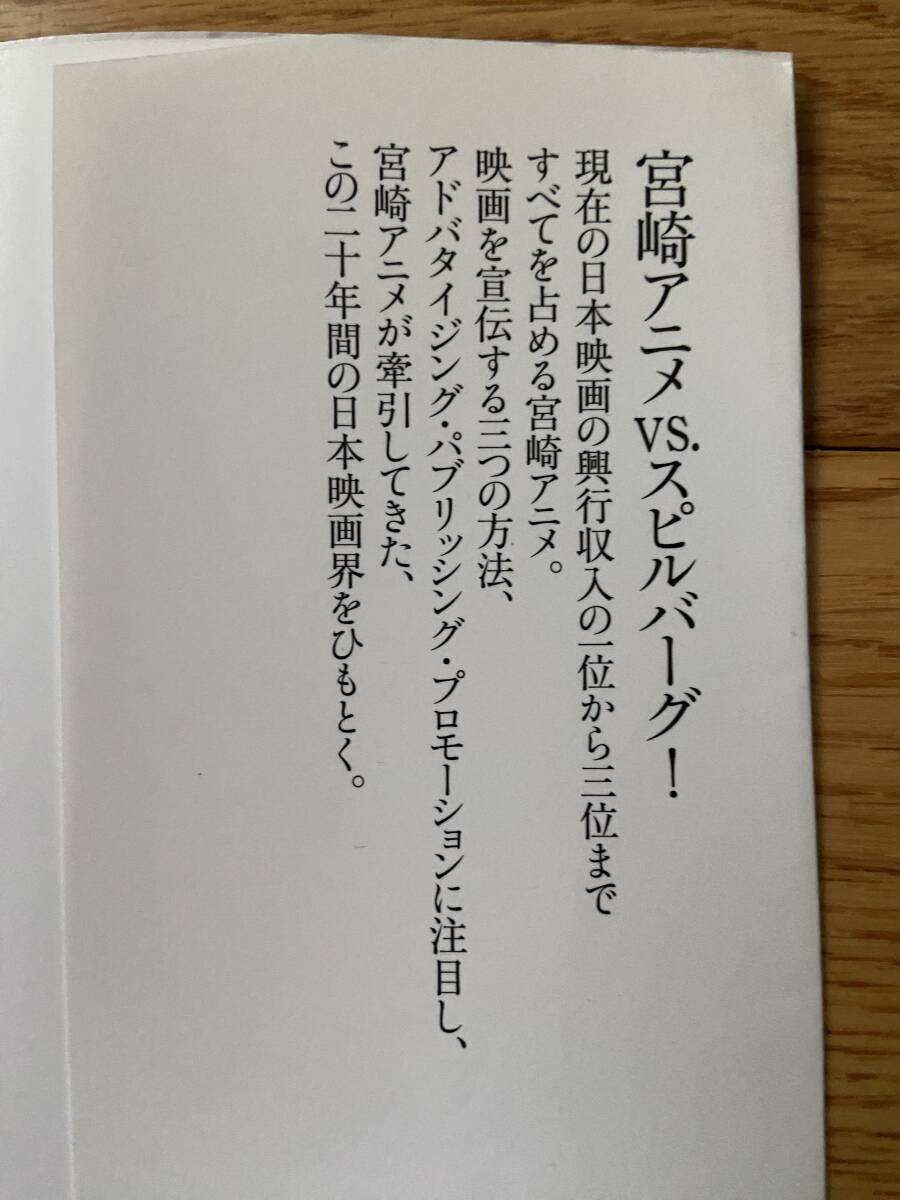 宮崎アニメvs.スピルバーグ！
現在の日本映画の興行収入の一位から三位まで
すべてを占める宮崎アニメ。
映画を宣伝する三つの方法、
アドバタイジング・パブリッシング・プロモーションに注目し、
宮崎アニメが牽引してきた、
この二十年間の日本映画界をひもとく。